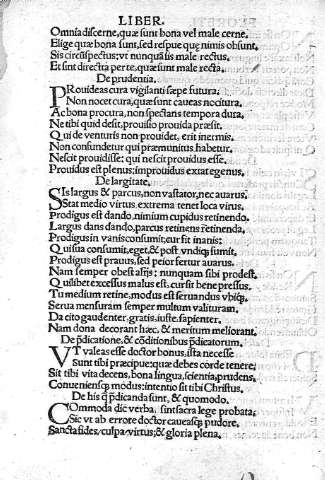 LIBER.
Omnia discerne, quæ sunt bona vel male cerne.
Elige quæ bona sunt, sed respue quę nimis obsunt.
Sis circũspectus; vt nunquã sis male rectus.
Et sint directa per te, quæ sunt male recta.
De prudentia.
PRouideas cura vigilanti sæpe futura;
Non nocet cura, quæ sunt caueas nocitura.
Ac bona procura, non spectans tempora dura.
Ne tibi quid desit, prouisio prouida præsit.
Qui de venturis non prouidet, erit inermis.
Non confundetur qui præmunitus habetur.
Nescit prouidisse; qui nescit prouidus esse.
Prouidus est plenus; improuidus extat egenus.
De largitate.
SIs largus & parcus, non vastator, nec auarus.
Stat medio virtus, extrema tenet loca virus.
Prodigus est dando, nimium cupidus retinendo.
Largus dans dando, parcus retinens retinenda.
Prodigus in vanis consumit; eur fit inanis;
Quisua consumit, eget, & post vndiq; sumit.
Prodigus est prauus, sed peior fertur auarus.
Nam semper obest alijs; nunquam sibi prodest.
Quilibet excessus malus est, cursit bene pressus.
Tu medium retine, modus est seruandus vbiq;.
Serua mensuram semper multum valituram.
Da cito gaudenter, gratis, iuste, sapienter.
Nam dona decorant hæc, & meritum meliorant.
De p̃dicatione, & cõditionibus p̃dicatorum.
VT valeas esse doctor bonus, ista necesse
Sunt tibi præcipue; quæ debes corde tenere;
Sit tibi vita decens, bona lingua, scientia, prudens,
Conueniensq; modus; intentio sit tibi Christus.
De his q̃ p̃dicanda sunt, & quomodo.
COmmoda dic verba, sint sacra lege probata;
Sic vt ab errore doctor caueasq; pudore.
Sancta fides, culpa, virtus; & gloria plena.